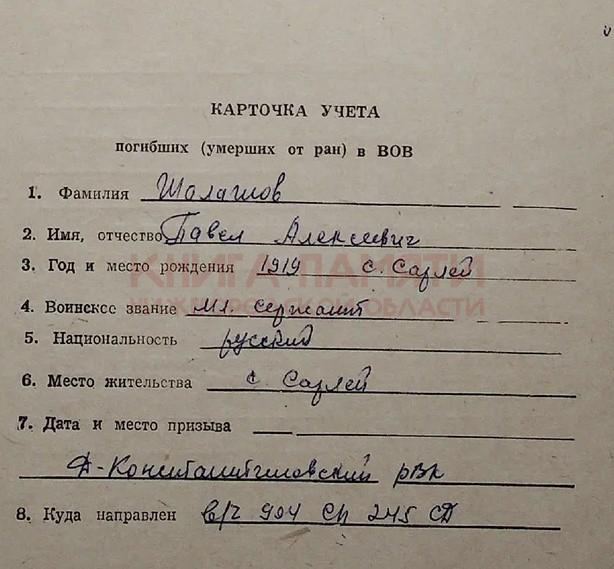 КАРТОЧКА УЧЕТА
погибших (умерших от ран) в ВОВ
1. Фамилия Шалашов
2. Имя, отчество Павел Алексеевич
3. Год и место рождения 1919 с. Сарлей
КНИГА ПАМЯТИ
НИЖЕГОРОДСКОЙ ОБЛАСТИ
4. Воинское звание мл. сержант
5. Национальность русский
6. Место жительства с. Сарлей
7. Дата и место призыва
Д-Константиновский РВК
8. Куда направлен в/ч 904 сп 245 СД